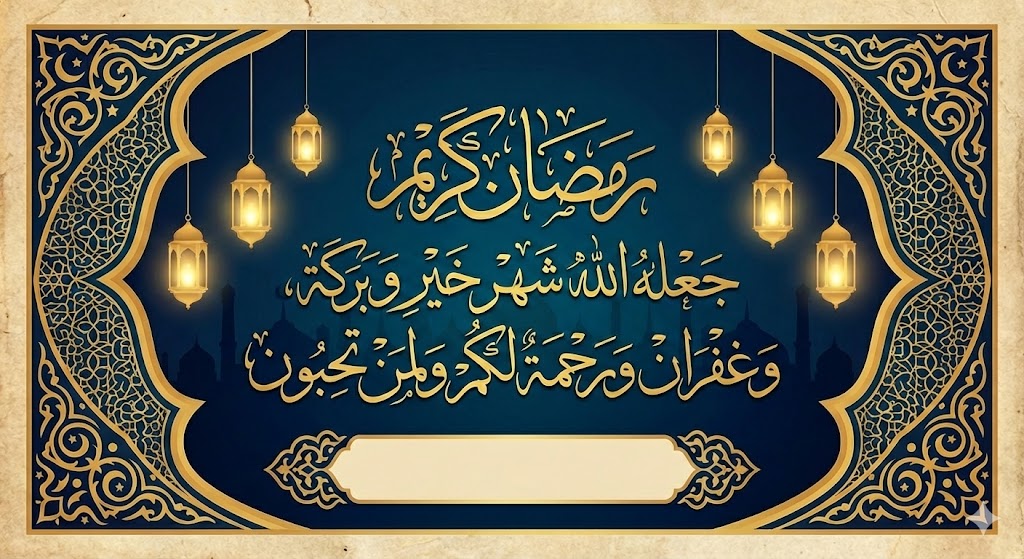 رَمَضَان كَرِيْم
جَعَلهُ اللهُ شَهْر خَيْرٍ وَبَرَكَة،
وَغفْرَانْ وَرَحْمَةٌ لكُمْ وَلمَنْ تحِبُون